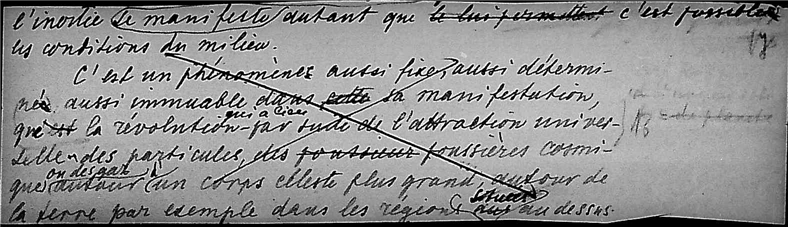 l'inostie se manifeste autant que le lui permettent c'est possible
les conditions du milieu.
C'est un phénomène aussi fixe, aussi détermi-
né aussi immuable dans cette sa manifestation,
que est la révolution par suite de l'attraction univer-
selle des particules, des poussières cosmi-
ou des gaz
ques autour un corps céleste plus grand, autour de
la terre par exemple dans les régions situées au dessus